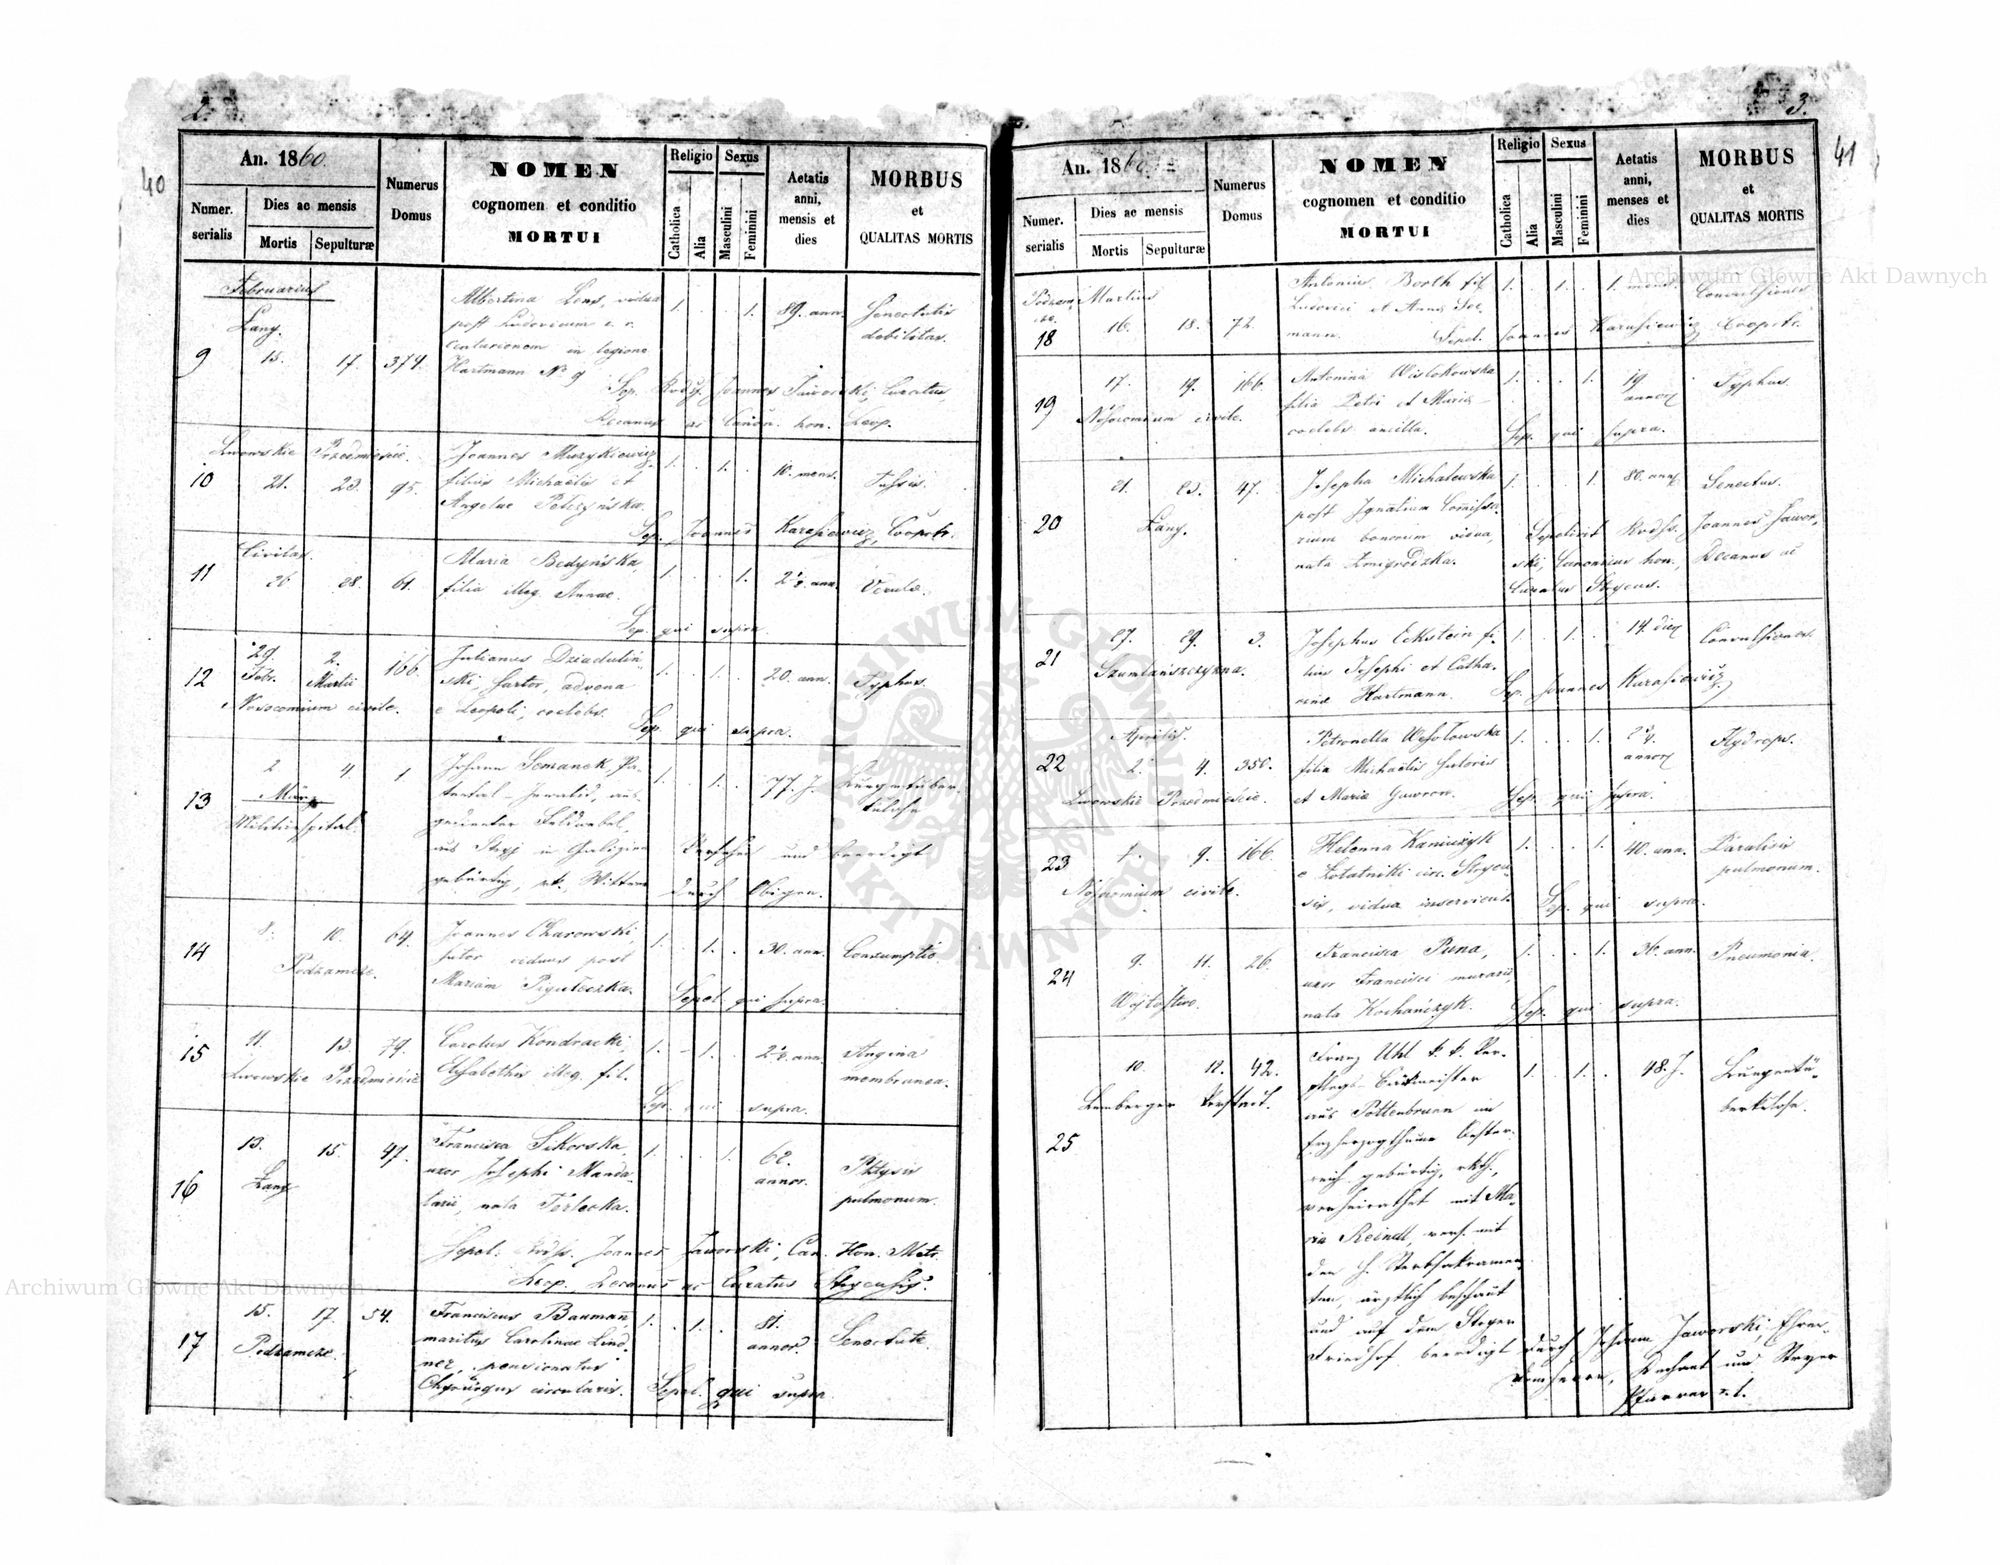 2.
40
An. 1860.
Numer. serialis
Dies ac mensis
Mortis
Sepulturæ
Numerus Domus
NOMEN
cognomen et conditio
MORTUI
Religio
Catholica
Alia
Sexus
Masculini
Feminini
Aetatis
anni,
mensis et
dies
MORBUS
et
QUALITAS MORTIS
Februarius
Łany.
9 15. 17. 374. 1. 1. 89. ann.
Albertina Lens, vidua
post Ludovicum c. r.
centurionem in legione
Hartmann No 9
Senectutis
debilitas.
Sep. Joannes Jaworski, Curatus,
Decanus ac Canon. hon. Leop.
Lwowskie Przedmieście.
10 21. 23. 95. 1. 1. 10. mens.
Joannes Muzykiewicz
filius Michaëlis et
Angelae Pelczyńska.
Tussis.
Sep. Joannes Karasiewicz, Cooptr.
Civitas.
11 26 28. 61. 1. 1. ann.
Maria Bedyńska,
filia illeg. Annae.
Sep. qui supra
12 29 Febr. 2. Martii 166. 1. 1. 20. ann.
Julianus Dziadulin
ski, sartor, advena
e Leopoli, coelebs.
Typhus.
Nosocomium civile.
Sep. qui supra.
13 2 4. 1. 1. 1. 77. J.
März
Militärspital.
Johann Semanek, Pa-
tental-Invalid, aus-
gedienter Feldwebel,
aus Stryj in Galizien
gebürtig, rk. Wittwer
Lungentuber
kulose
Versehen und beerdigt
durch Obigen.
14 8. 10. 64. 1. 1. 30. ann.
Podzamcze.
Joannes Charowski,
sutor viduus post
Mariam Piguteczka.
Consumptio.
Sepel. qui supra.
15 11. 13. 79. 1. 1. ann.
Lwowskie Przedmieście
Carolus Kondracki,
Elisabethis illeg. fil.
Angina
membranea.
Sep. qui supra.
16 13. 15. 47. 1. 1. 62. annor.
Łany
Francisca Sikorska,
uxor Josephi Manda-
tarii, nata Terlecka.
pulmonum.
Sepel. Joannes Jaworski, Can. Hon. Metr.
Leop., Decanus ac Curatus Stryensis.
17 15. 17. 54. 1. 1. 81. annor.
Podzamcze.
Franciscus Bauman,
maritus Carolinae Lind-
ner, pensionatus
Chyrurgus circularis.
Senectute.
Sepel. qui supra
3.
41
An. 1860.
Numer. serialis
Dies ac mensis
Mortis
Sepulturæ
Numerus Domus
NOMEN
cognomen et conditio
MORTUI
Religio
Catholica
Alia
Sexus
Masculini
Feminini
Aetatis
anni,
menses et
dies
MORBUS
et
QUALITAS MORTIS
Martius
18 16. 18. 72. 1. 1. 1. mens.
Antonius Borth fil.
Ludovici et Anna See
mann.
Convulsiones
Sepel. Joannes Karasiewicz Cooptr.
19 17. 19. 166. 1. 1. 19 annor.
Nosocomium civile.
Antonina Wislokowska
filia Petri et Maria
coelebs ancilla.
Typhus.
Sep. qui supra.
20 21. 23. 47. 1. 1. 80. ann.
Łany.
Josepha Michalewska
post Ignatium Comissa-
rium bonorum vidua,
nata Zmigrodzka.
Senectus.
Sepelivit Joannes Jawor-
ski, Canonicus hon., Decanus ac
Curatus Stryens.
21 27. 29. 3. 1. 1. 14. dier.
Szumlańszczyzna.
Josephus Eckstein fi-
lius Josephi et Catha-
rinae Hartmann.
Convulsiones.
Sep. Joannes Karasiewicz
Aprilis.
22 2. 4. 350. 1. 1. annor.
Lwowskie Przedmieście.
Petronella Wesołowska
filia Michaëlis sutoris
et Maria Gawron.
Hydrops.
Sep. qui supra.
23 7. 9. 166. 1. 1. 40. ann.
Nosocomium civile.
Helenna Kaniuczyk
e Łotatniki circ. Stryen-
sis, vidua inservient.
Paralisis
pulmonum.
Sep. qui supra.
24 9. 11. 26. 1. 1. 36. ann.
Wojtostwo.
Francisca Puna,
uxor Francisci muraris,
nata Kochańczyk.
Pneumonia.
Sep. qui supra.
25 10. 12. 42. 1. 1. 48. J.
Lemberger Vorstadt.
Franz Uhl k. k. Ver-
pflegs-Bäckmeister
aus Pottenbrunn im
Erzherzogthume Oester-
reich gebürtig, rkth.,
verheirathet mit Ma-
ria Reindl, vers. mit
den h. Sterbsakramen-
ten, ärztlich beschaut
und auf dem Stryer
Friedhof beerdigt durch Johann Jaworski, Ehren-
domherrn, Dechant und Stryer
Pfarrer r. l.
Lungentu-
berkulose.
Archiwum Główne Akt Dawnych
Archiwum Główne Akt Dawnych
ARCHIWUM GŁÓWNE AKT DAWNYCH